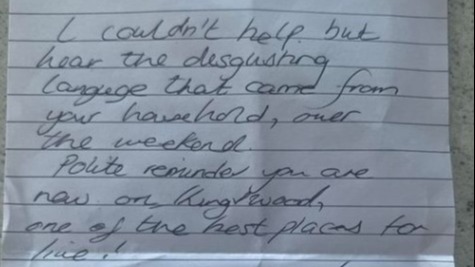 I couldn't help but
hear the disgusting
languge that came from
your household, over
the weekend.
Polite reminder you are
now on, Kingswood,
one of the best places for
live!